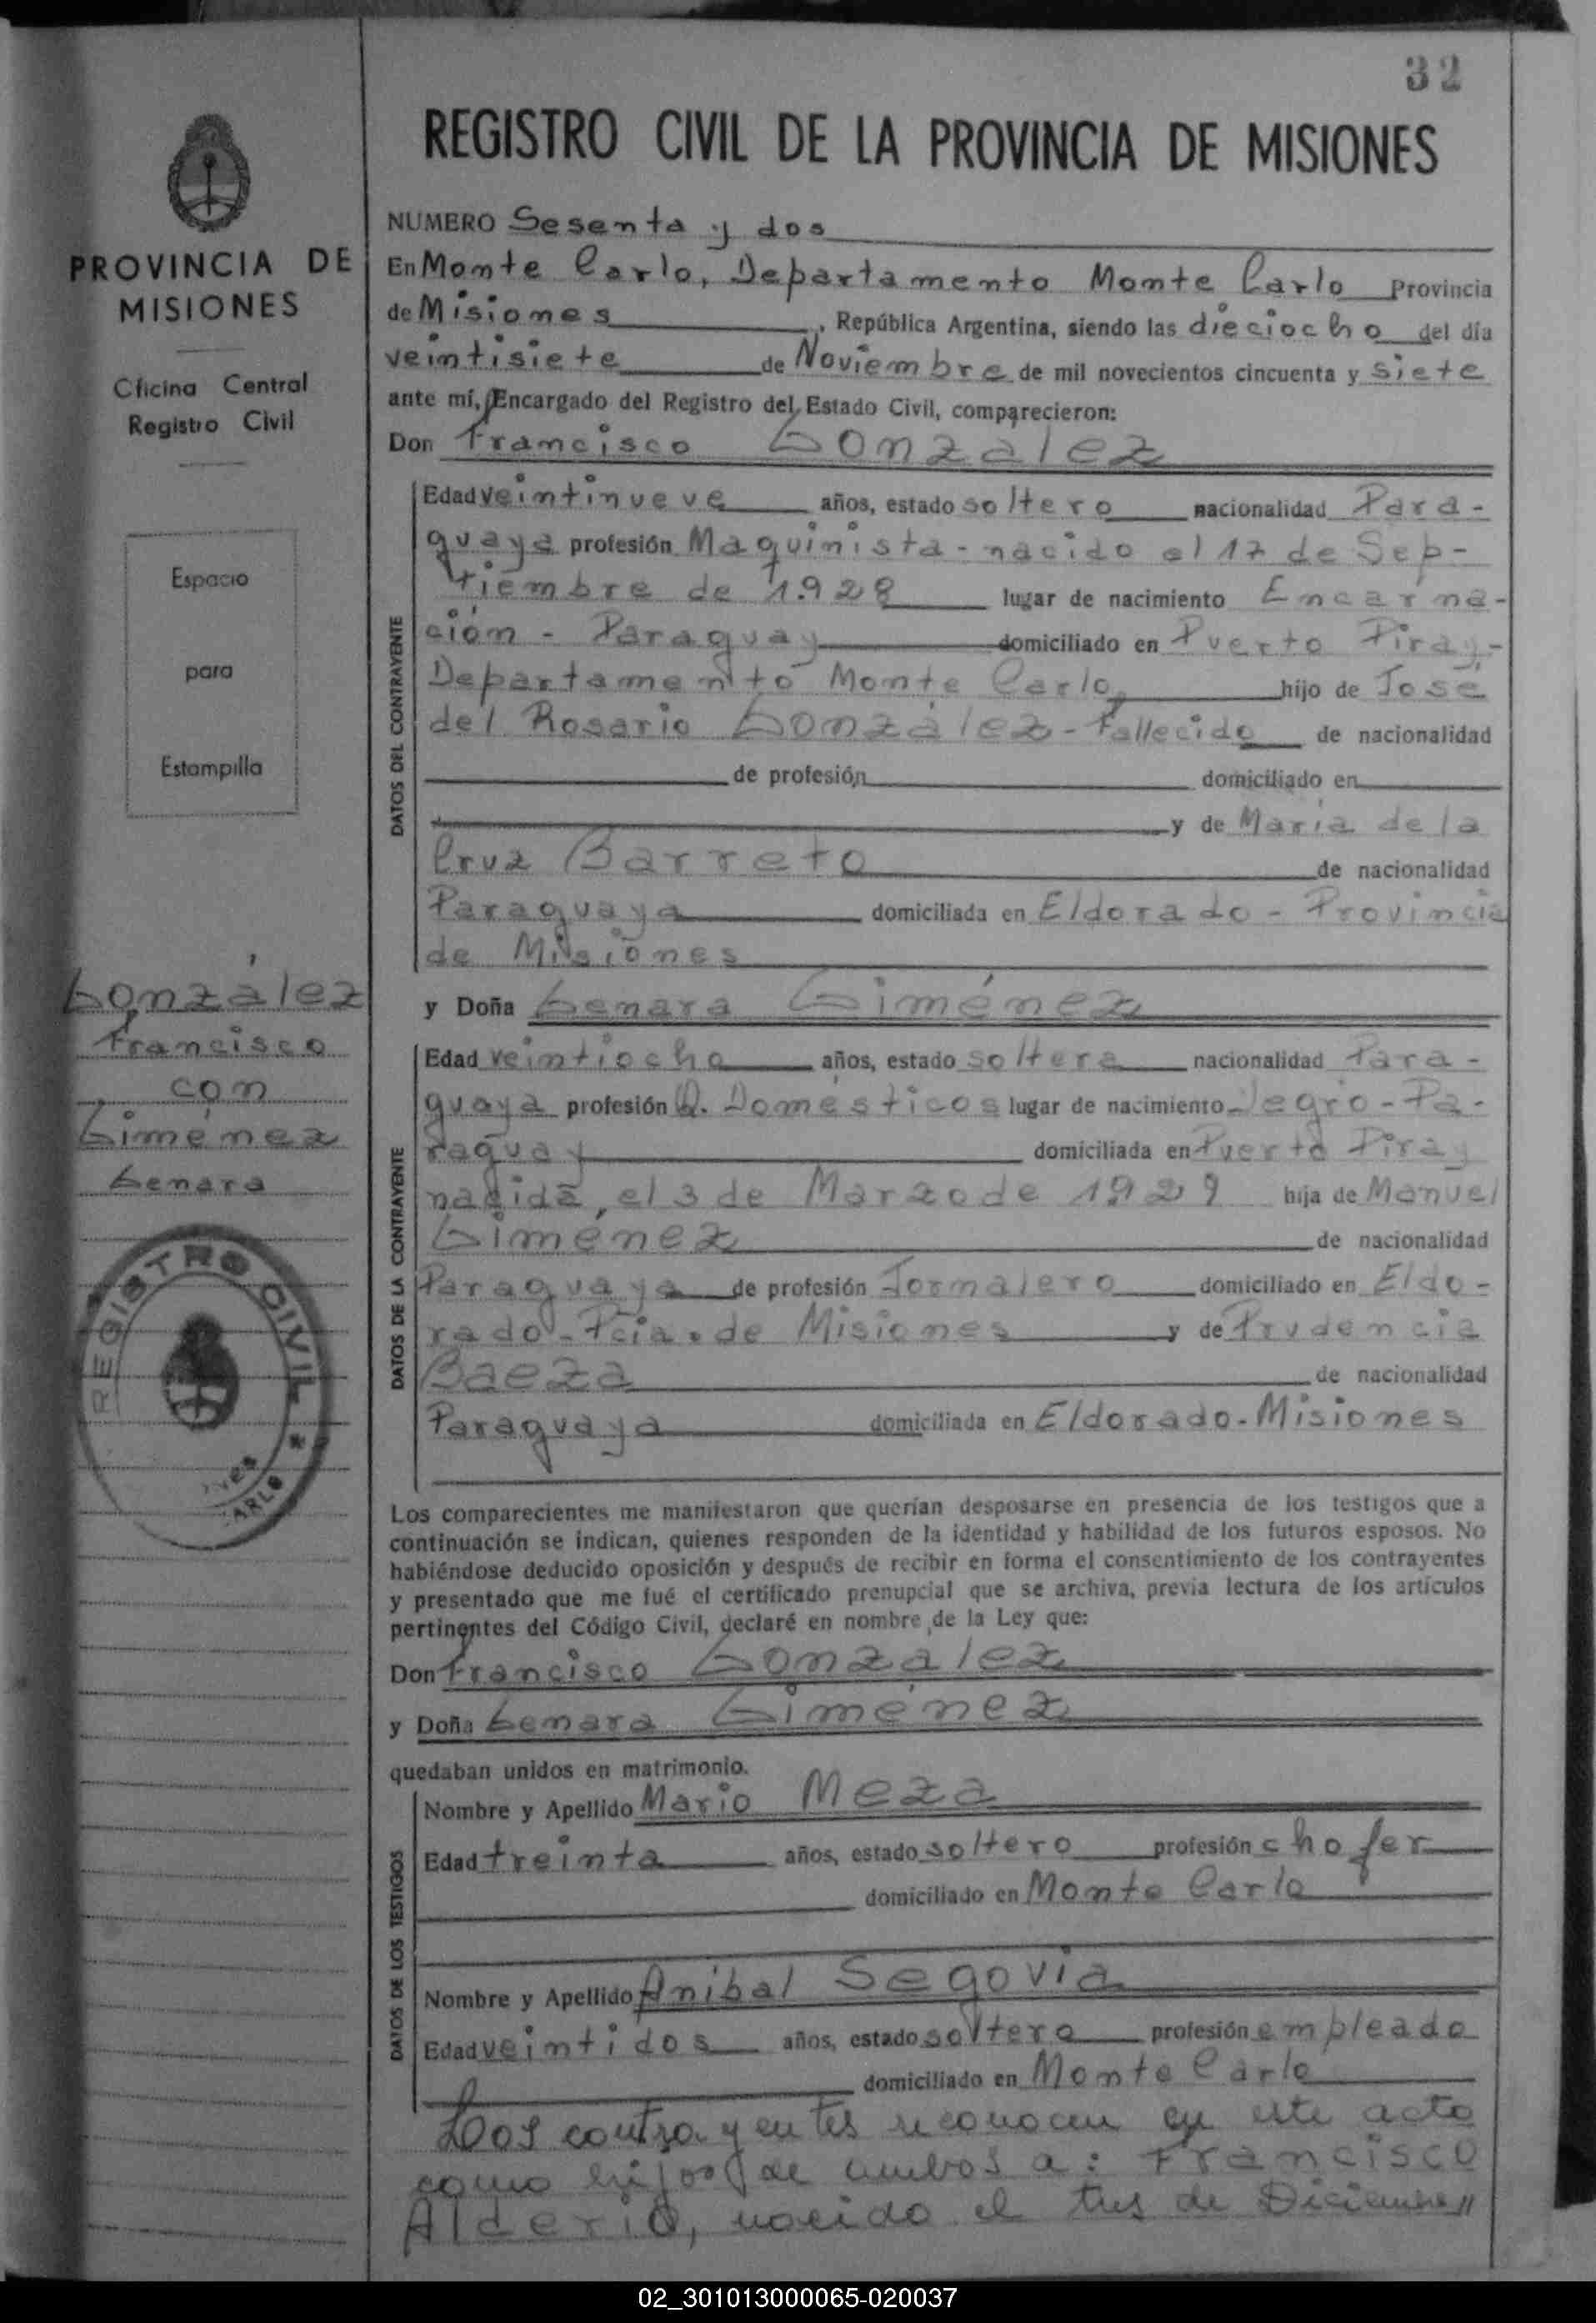 32
REGISTRO CIVIL DE LA PROVINCIA DE MISIONES
PROVINCIA DE
MISIONES
Oficina Central
Registro Civil
Espacio
para
Estampilla
González
Francisco
con
Giménez
Genara
REGISTRO CIVIL
NUMERO Sesenta y dos
En Monte Carlo, Departamento Monte Carlo Provincia
de Misiones, República Argentina, siendo las dieciocho del día
veintisiete de Noviembre de mil novecientos cincuenta y siete
ante mí, Encargado del Registro del Estado Civil, comparecieron:
Don Francisco Gonzalez
DATOS DEL CONTRAYENTE
Edad veintinueve años, estado soltero nacionalidad Para-
guaya profesión Maquinista - nacido el 17 de Sep-
tiembre de 1.928 lugar de nacimiento Encarna-
ción - Paraguay domiciliado en Puerto Piray-
Departamento Monte Carlo, hijo de José
del Rosario González - Fallecido de nacionalidad
de profesión domiciliado en
y de María de la
Cruz Barreto de nacionalidad
Paraguaya domiciliada en Eldorado - Provincia
de Misiones
y Doña Genara Giménez
DATOS DE LA CONTRAYENTE
Edad veintiocho años, estado soltera nacionalidad Para-
guaya profesión Q. Domésticos lugar de nacimiento Jegro - Pa-
raguay domiciliada en Puerto Piray
nacida, el 3 de Marzo de 1929 hija de Manuel
Giménez de nacionalidad
Paraguaya de profesión Jornalero domiciliado en Eldo-
rado - Pcia. de Misiones y de Prudencia
Baeza de nacionalidad
Paraguaya domiciliada en Eldorado - Misiones
Los comparecientes me manifestaron que querían desposarse en presencia de los testigos que a
continuación se indican, quienes responden de la identidad y habilidad de los futuros esposos. No
habiéndose deducido oposición y después de recibir en forma el consentimiento de los contrayentes
y presentado que me fué el certificado prenupcial que se archiva, previa lectura de los artículos
pertinentes del Código Civil, declaré en nombre de la Ley que:
Don Francisco Gonzalez
y Doña Genara Giménez
quedaban unidos en matrimonio.
DATOS DE LOS TESTIGOS
Nombre y Apellido Mario Meza
Edad treinta años, estado soltero profesión chofer
domiciliado en Monte Carlo
Nombre y Apellido Anibal Segovia
Edad veintidos años, estado soltero profesión empleado
domiciliado en Monte Carlo
Los contrayentes reconocen en este acto
como hijos de ambos a: Francisco
Alderio, nacido el tres de Diciembre//
02_301013000065-020037